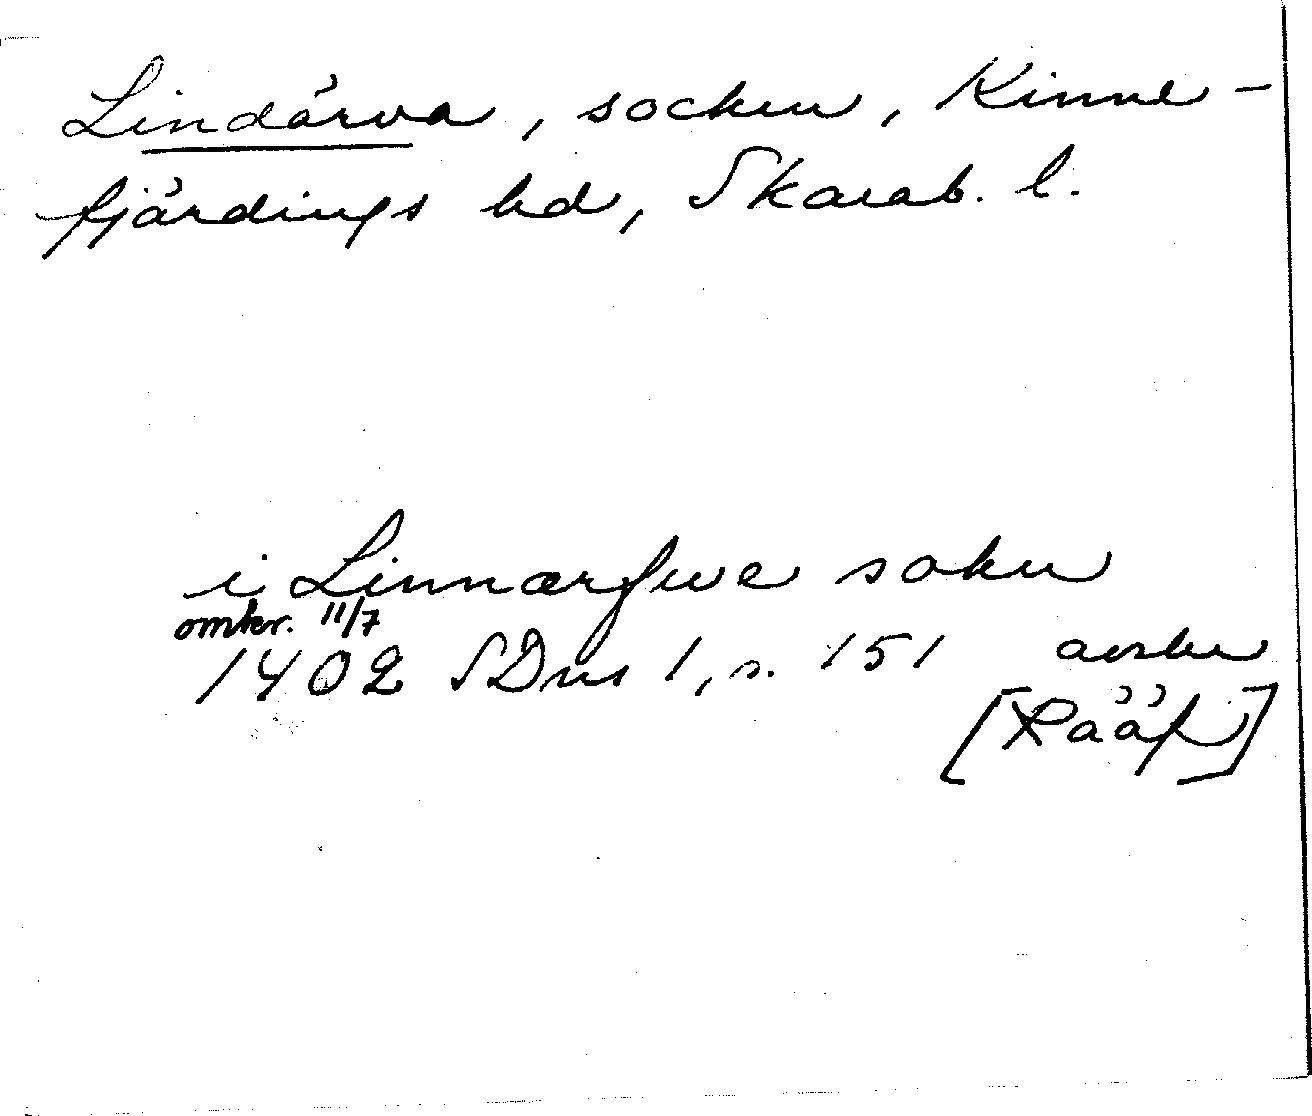 Lindärva, socken, Kinne-
fjärdings hd, Skarab. l.
i Linnærfwe sokn
omkr. 11/7
1402 SDns 1, s. 151 avskr
[Rääf]